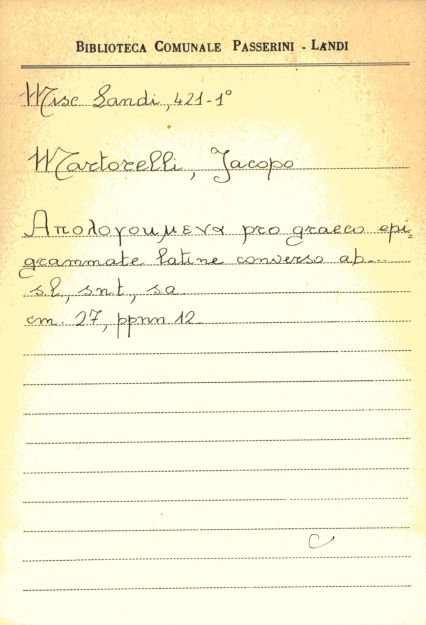 BIBLIOTECA COMUNALE PASSERINI - LANDI
Misc Landi, 421-1°
Martorelli, Jacopo
Απολογουμενα pro graeco epi=
grammate latine converso ab...
sl, snt, sa
cm. 27, ppnn 12
C